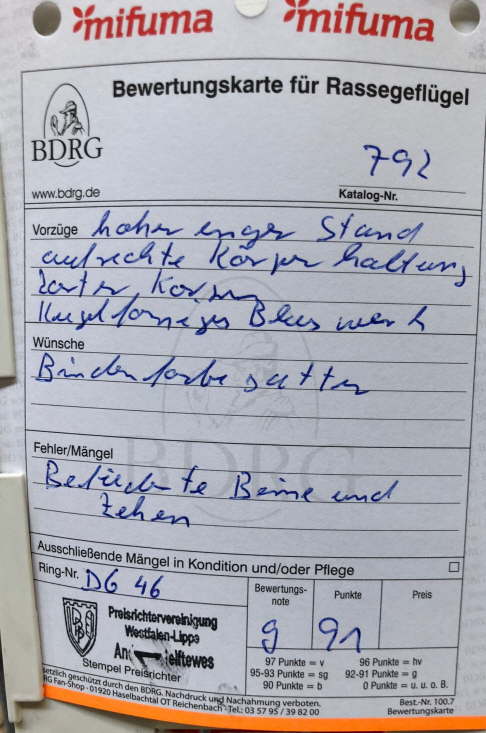 mifuma mifuma
Bewertungskarte für Rassegeflügel
BDRG
792
www.bdrg.de
Katalog-Nr.
Vorzüge hoher enger Stand
aufrechte Körperhaltung
zarter Körper
Kugelförmiges Blaswerk
Wünsche
Bindenfarbe satter
BDRG
Fehler/Mängel
Beine und
Zehen
Ausschließende Mängel in Kondition und/oder Pflege
Ring-Nr. DG 46
Bewertungs-
note
Punkte
Preis
g 91
Preisrichtervereinigung
Westfalen-Lippe
Stempel Preisrichter
97 Punkte = v 96 Punkte = hv
95-93 Punkte = sg 92-91 Punkte = g
90 Punkte = b 0 Punkte = u. u. o. B.
setzlich geschützt durch den BDRG. Nachdruck und Nachahmung verboten.
RG Fan-Shop · 01920 Haselbachtal OT Reichenbach · Tel.: 03 57 95 / 39 82 00
Best.-Nr. 100.7
Bewertungskarte